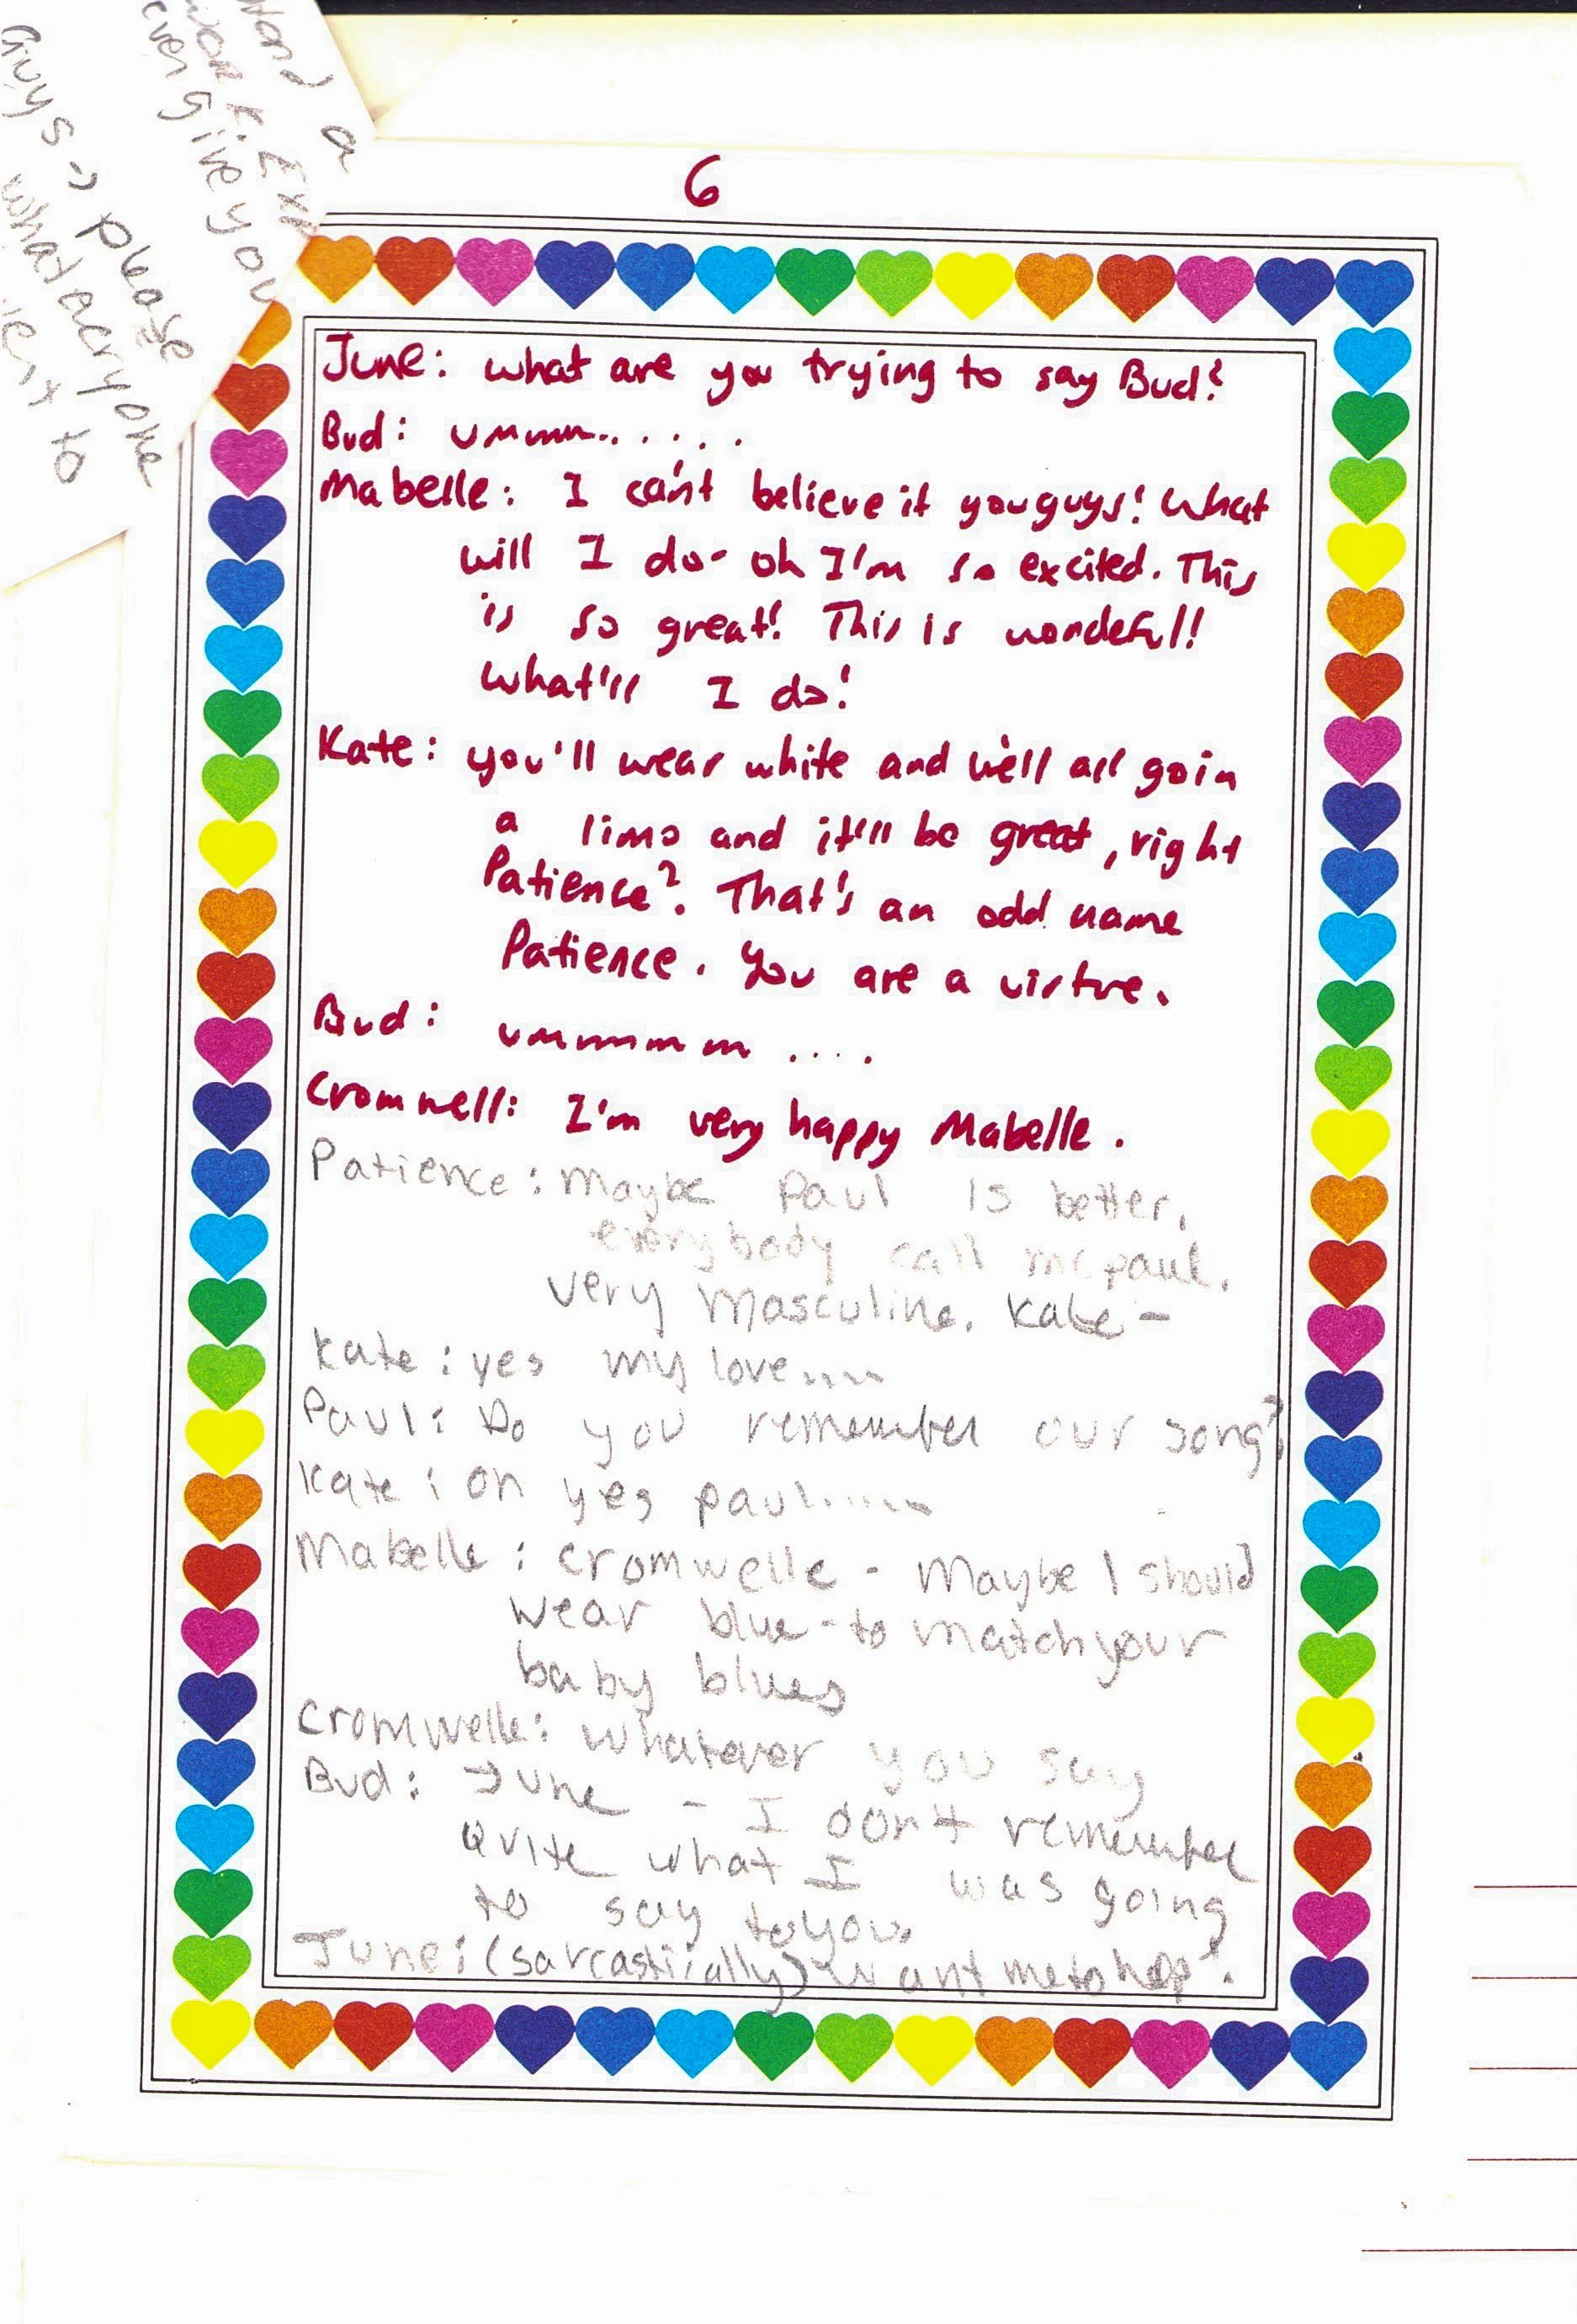 Hand a
work.
ever give you
Guys → please
what acryone
to
6
June: what are you trying to say Bud?
Bud: ummm......
Mabelle: I can't believe it you guys! What
will I do- oh I'm so excited. This
is so great! This is wondeful!
What'll I do!
Kate: you'll wear white and we'll all go in
a limo and it'll be great, right
Patience?. That's an odd name
Patience. You are a virtue.
Bud: ummmmm ....
Cromwell: I'm very happy Mabelle.
Patience: Maybe Paul is better.
everybody call me paul.
very masculine. Kate -
Kate: yes my love....
Paul: Do you remember our song?
Kate: oh yes paul.....
Mabelle: cromwelle - Maybe I should
wear blue - to match your
baby blues
cromwelle: whatever you say
Bud: June - I don't remember
quite what I was going
to say to you.
June: (sarcastically) want me to help?.